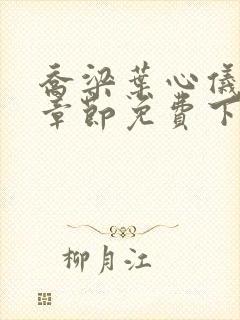 乔梁叶心仪
章节免费下
柳月江